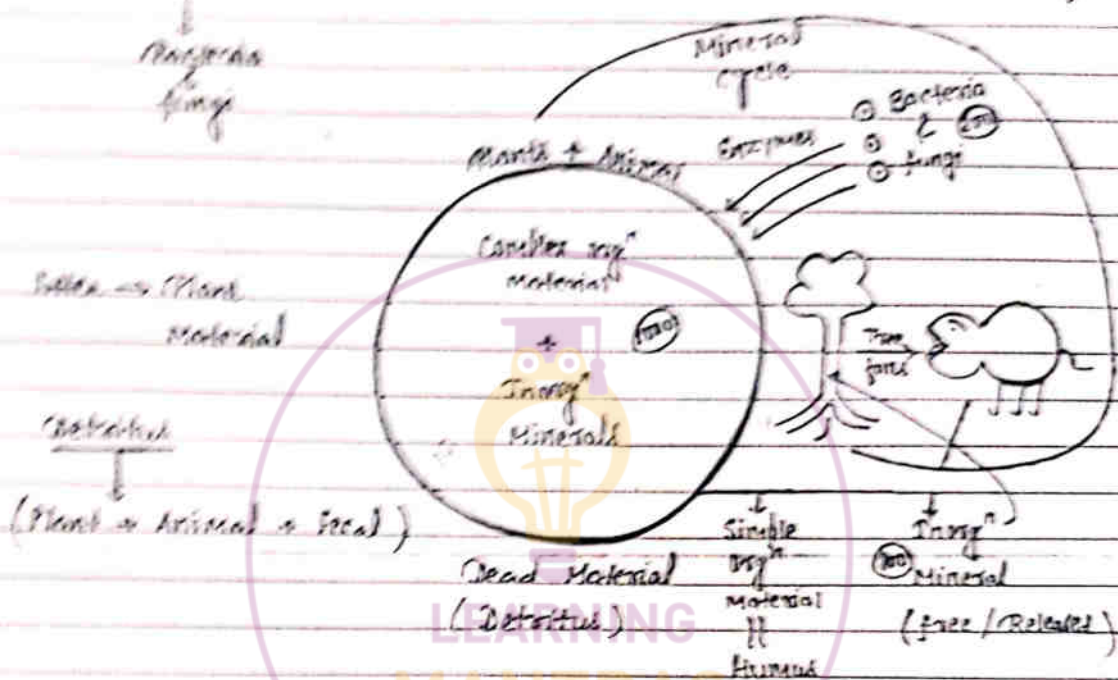 Bacteria
&
fungi
Mineral
cycle
Enzymes
Bacteria
&
fungi
Plants + Animal
Complex orgⁿ
material
+
Inorgⁿ
Minerals
→ Plant
Material
Detritus
(Plant + Animal + Fecal)
Tree
Dead Material
(Detritus)
Simple
orgⁿ
material
||
Humus
Inorgⁿ
Mineral
(free / Released)
LEARNING